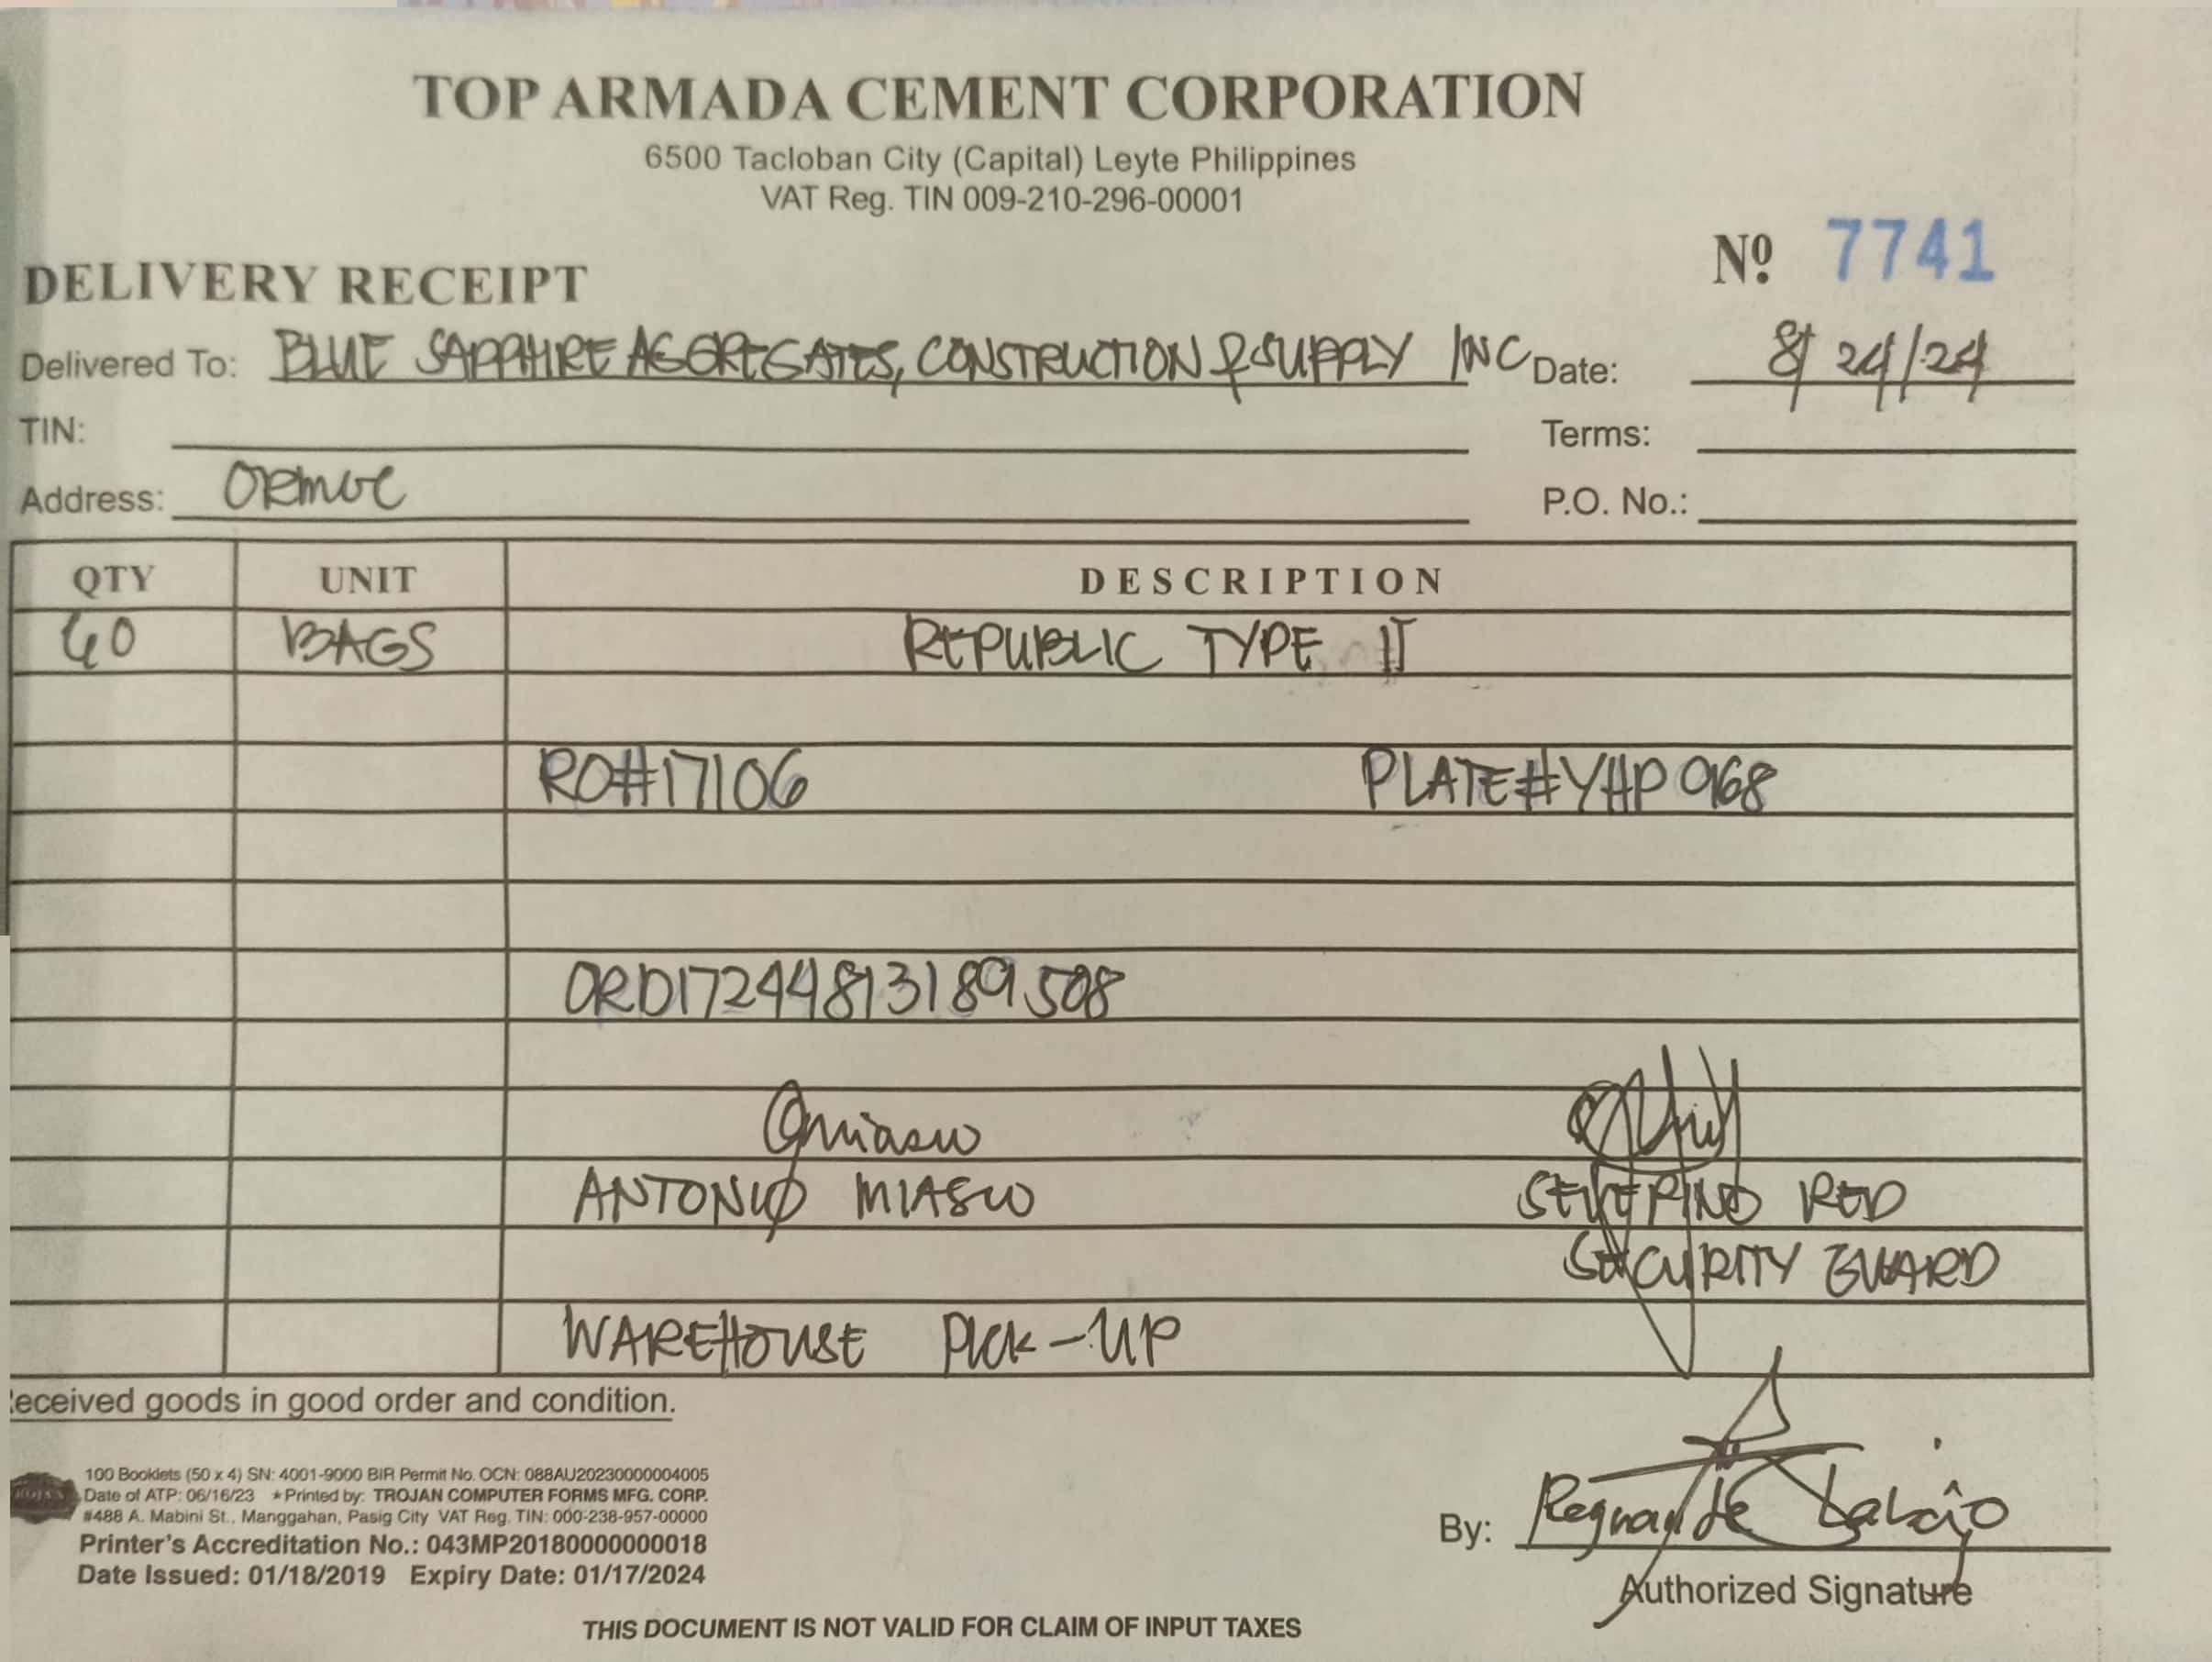 TOP ARMADA CEMENT CORPORATION
6500 Tacloban City (Capital) Leyte Philippines
VAT Reg. TIN 009-210-296-00001
Nº 7741
DELIVERY RECEIPT
Delivered To: BLUE SAPPHIRE AGGREGATES, CONSTRUCTION & SUPPLY INC Date: 8/24/24
TIN: Terms:
Address: ORMOC P.O. No.:
QTY UNIT DESCRIPTION
BAGS REPUBLIC TYPE
RO#17106 PLATE#YHP 968
ORD17244813189508
ANTONIO SEVERINO RED
SECURITY GUARD
WAREHOUSE PICK-UP
eceived goods in good order and condition.
100 Booklets (50 x 4) SN: 4001-9000 BIR Permit No. OCN: 088AU20230000004005
Date of ATP: 06/16/23 *Printed by: TROJAN COMPUTER FORMS MFG. CORP.
#488 A. Mabini St., Manggahan, Pasig City VAT Reg. TIN: 000-238-957-00000
Printer's Accreditation No.: 043MP20180000000018
Date Issued: 01/18/2019 Expiry Date: 01/17/2024
By:
Authorized Signature
THIS DOCUMENT IS NOT VALID FOR CLAIM OF INPUT TAXES